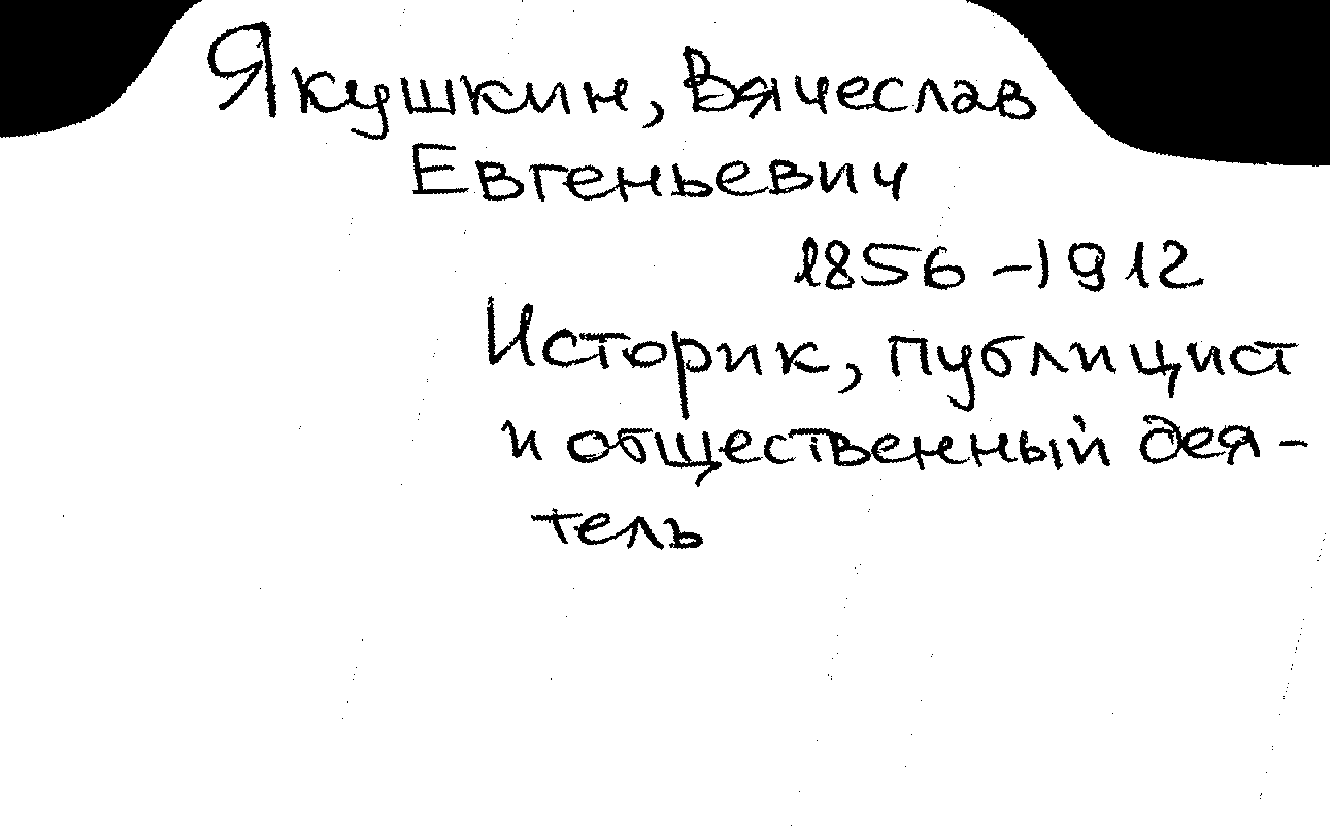 Якушкин, Вячеслав
Евгеньевич
1856-1912
Историк, публицист
и общественный дея-
тель